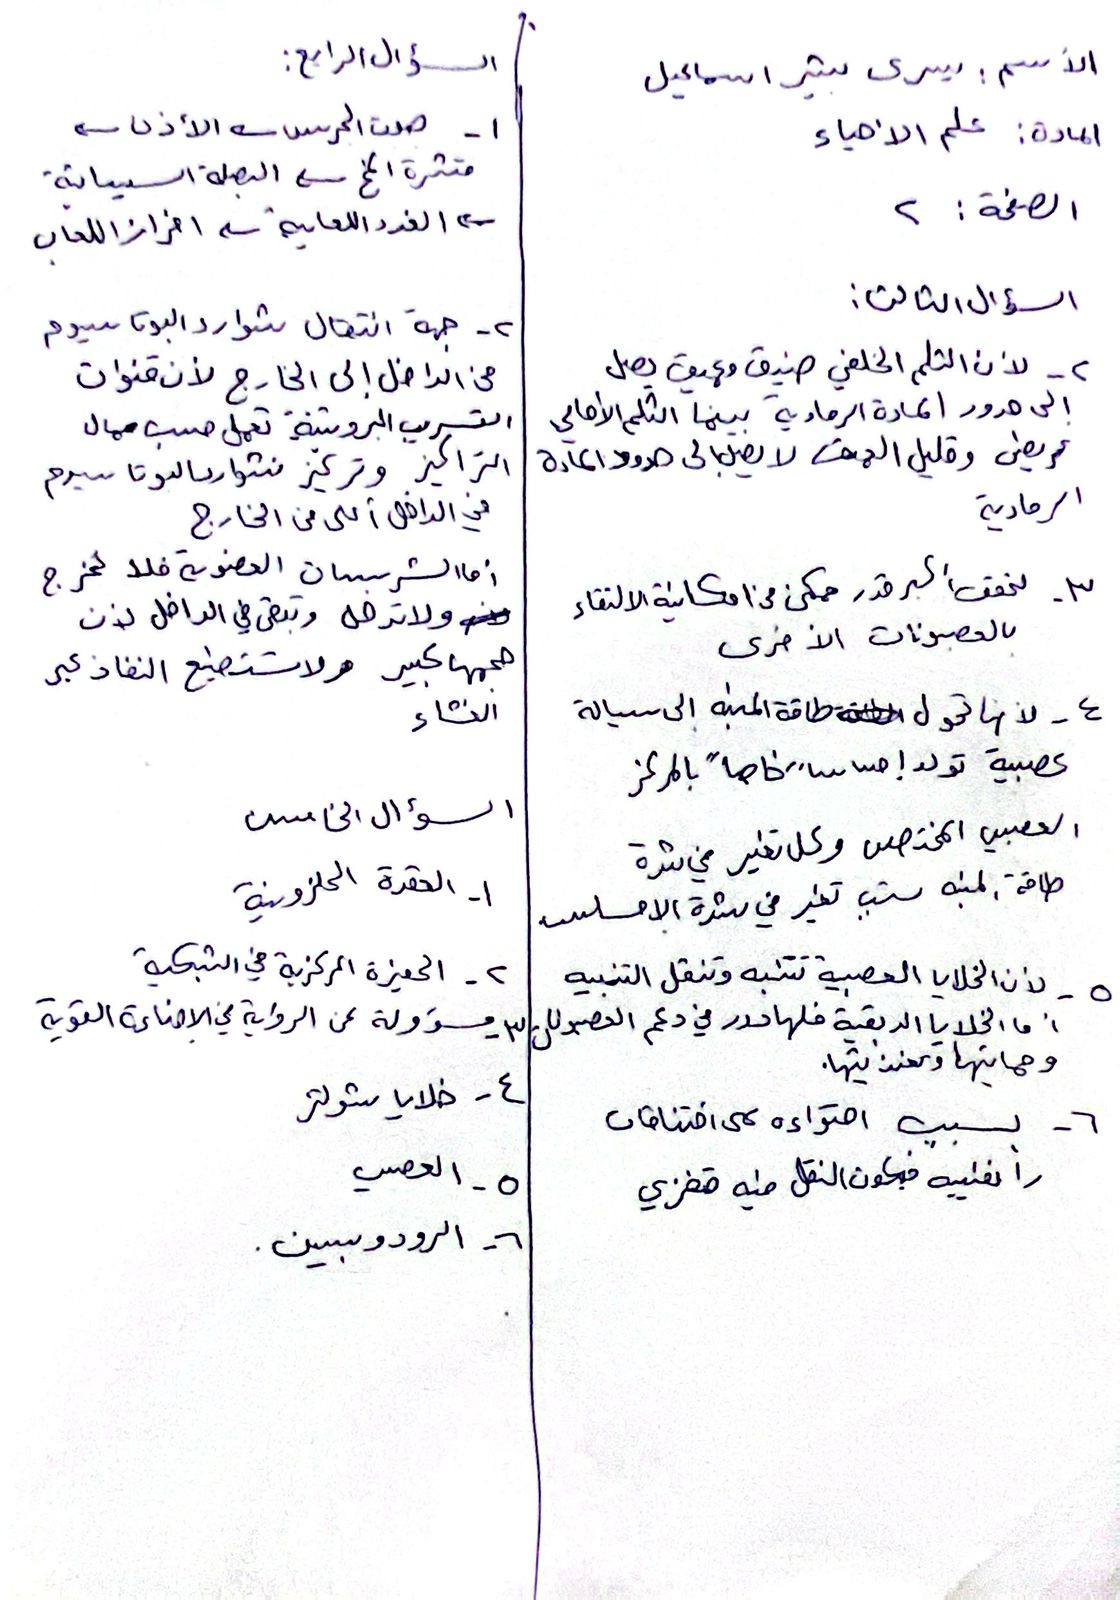 الأسم : يسرى بشير اسماعيل
المادة : علم الاحياء
الصفحة : ٢
السؤال الثالث :
٢- لأن الثلم الخلفي ضيق وعميق يصل
إلى حدود المادة الرمادية بينما الثلم الأمامي
عريض وقليل العمق لا يصل إلى حدود المادة
الرمادية
٣- لتحقق أكبر قدر ممكن من امكانية الالتقاء
بالعصبونات الأخرى
٤- لأنها تحول طاقة المنبه الى سيالة
عصبية تولد إحساساً خاصاً بالمركز
العصبي المختص وكل تغير في شدة
طاقة المنبه يسبب تغير في شدة الإحساس
٥- لأن الخلايا العصبية تتنبه وتنقل التنبيه
أما الخلايا الدبقية فلها دور في دعم العصبونات
وحمايتها وتغذيتها.
٦- بسبب احتواءه على اختناقات
رانفييه فيكون النقل فيه قفزي
السؤال الرابع :
١- صوت الجرس ← الأذن ←
قشرة المخ ← البصلة السيسائية
← الغدد اللعابية ← افراز اللعاب
٢- جهة انتقال شوارد البوتاسيوم
من الداخل إلى الخارج لأن قنوات
التسريب البروتينية تعمل حسب ممال
التراكيز وتركيز شوارد البوتاسيوم
في الداخل أعلى من الخارج
أما الشرسبات العضوية فلا تخرج
ولا تدخل وتبقى في الداخل لأن
حجمها كبير ولا تستطيع النفاذ عبر
الغشاء
السؤال الخامس
١- العقدة الحلزونية
٢- الحفيرة المركزية في الشبكية
٣- مسؤولة عن الرؤاية في الإضاءة القوية
٤- خلايا شولتز
٥- العصي
٦- الرودوبسين .